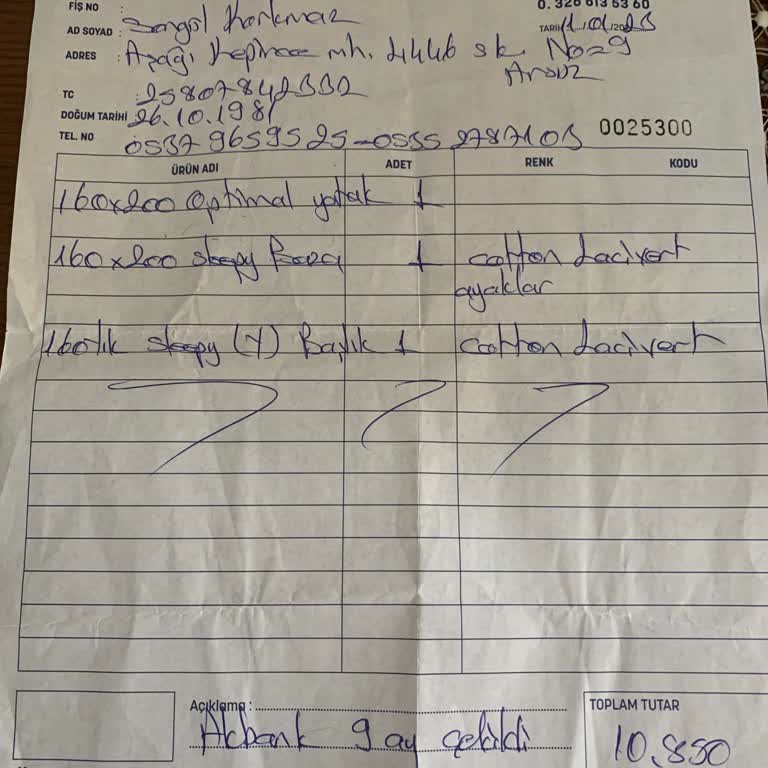 FİŞ NO :
0. 326 613 53 60
AD SOYAD : Songül Korkmaz
TARİH 1.01/2023
ADRES : Aşağı Kepirce mh. 4446 sk. No=9
Arsuz
TC : 25807842332
DOĞUM TARİHİ 26.10.1981
TEL. NO 0537 9659525-0535 2787103
0025300
ÜRÜN ADI ADET RENK KODU
160x200 Optimal yatak 1
160x200 sleepy Baza 1 cotton Lacivert
ayaklar
160lık sleepy (Y) Başlık 1 cotton Lacivert
Açıklama : Akbank 9 ay çekildi
TOPLAM TUTAR
10.850